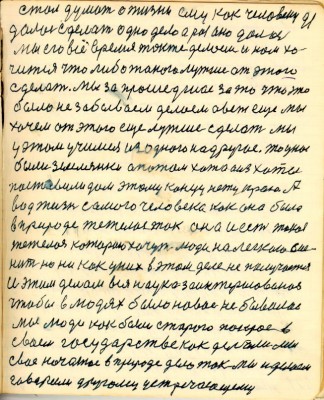 стал думат о жизни ему как человеку
далос сделат одно дело а рас ано далос
Мы его всё время тоже делаем и нам хо-
чится что либо такого лутше от этого
сделат. Мы за прошедшие за то что это
было не забываем делаем а вот еще мы
хочем от этого еще лутше сделат мы
у этом учимся из одного на другое. То у нас
были землянки а потом хата а из хаты
поставили дом этому концу нету права. А
вод жизн самого человека как она была
в природе тежелась так она и ест такая
тежелая которую хочут люди на легкую сме-
нит но ни как у них в этом деле не палучается
И этим делам вся наука заинтерисовалась
чтобы в людях было новае не бывалае
мы люди как были старого покроя в
своем государстве как делали мы
свае начатае в природе дело так мы и делаем
говорим другому устречающему